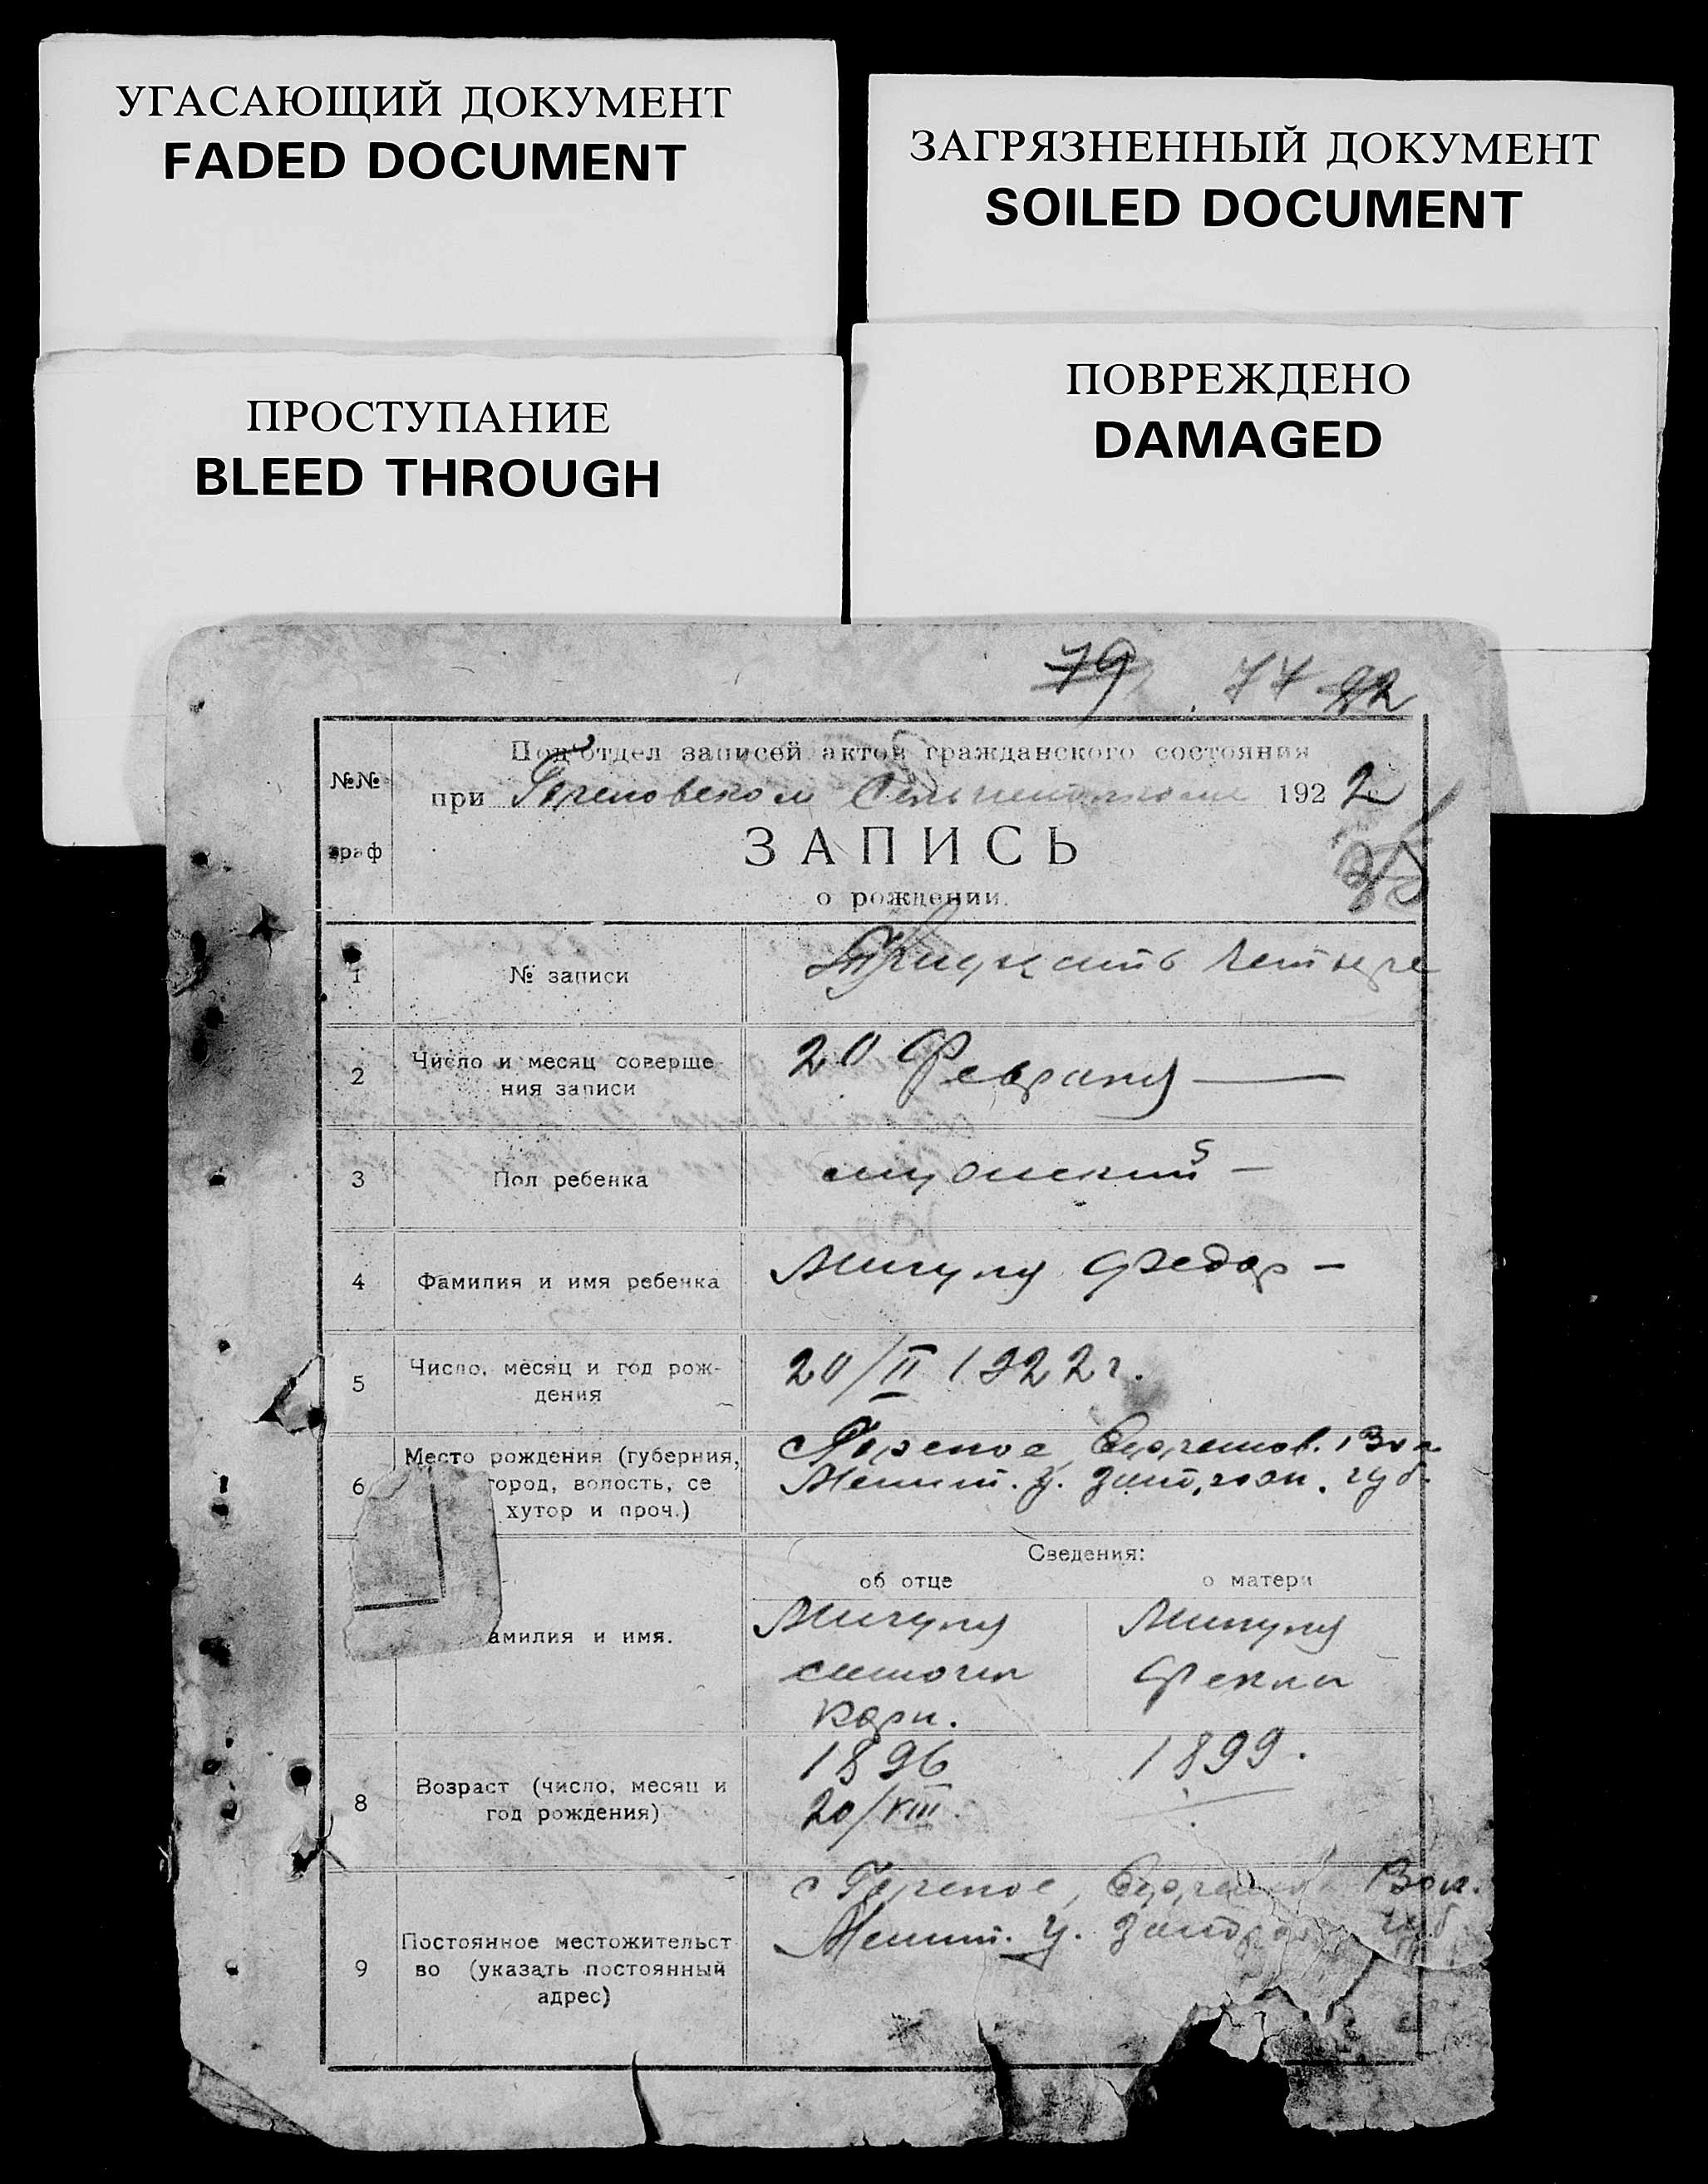 УГАСАЮЩИЙ ДОКУМЕНТ
FADED DOCUMENT
ЗАГРЯЗНЕННЫЙ ДОКУМЕНТ
SOILED DOCUMENT
ПРОСТУПАНИЕ
BLEED THROUGH
ПОВРЕЖДЕНО
DAMAGED
79 74 82
Под'отдел записей актов гражданского состояния
№№
при 192 2
граф
ЗАПИСЬ
о рождении.
1 № записи Тридцать четыре
2 Число и месяц соверше
ния записи
20 Февраля —
3 Пол ребенка мужский —
4 Фамилия и имя ребенка Мигуля Федор —
5 Число, месяц и год рож-
дения
20/II 1922 г.
6 Место рождения (губерния,
город, волость, се
хутор и проч.)
Вол
Мелит. у. губ.
Сведения:
об отце о матери
амилия и имя.
Мигуля Мигуля
Фекла
Корн.
8 Возраст (число, месяц и
год рождения)
1896 1899.
20/VIII.
9 Постоянное местожительст
во (указать постоянный
адрес)
с Вол.
Мелит. у. губ